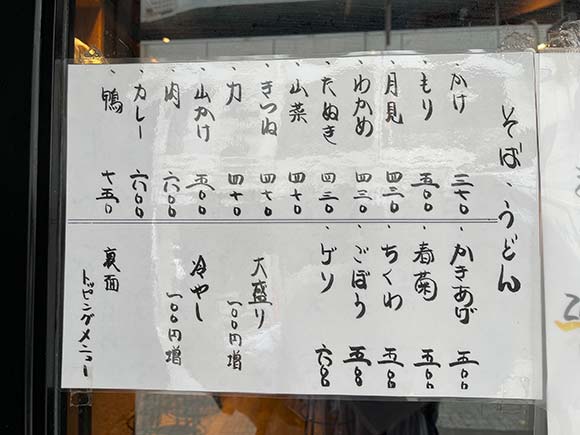 そば、うどん
・かけ 三七〇
・もり 五〇〇
・月見 四三〇
・わかめ 四三〇
・たぬき 四三〇
・山菜 四七〇
・きつね 四七〇
・力 四七〇
・山かけ 五〇〇
・肉 六〇〇
・カレー 六〇〇
・鴨 七五〇
・かきあげ 五〇〇
・春菊 五〇〇
・ちくわ 五〇〇
・ごぼう 五〇〇
・ゲソ 六〇〇
大盛り
一〇〇円増
冷やし
一〇〇円増
裏面
トッピングメニュー